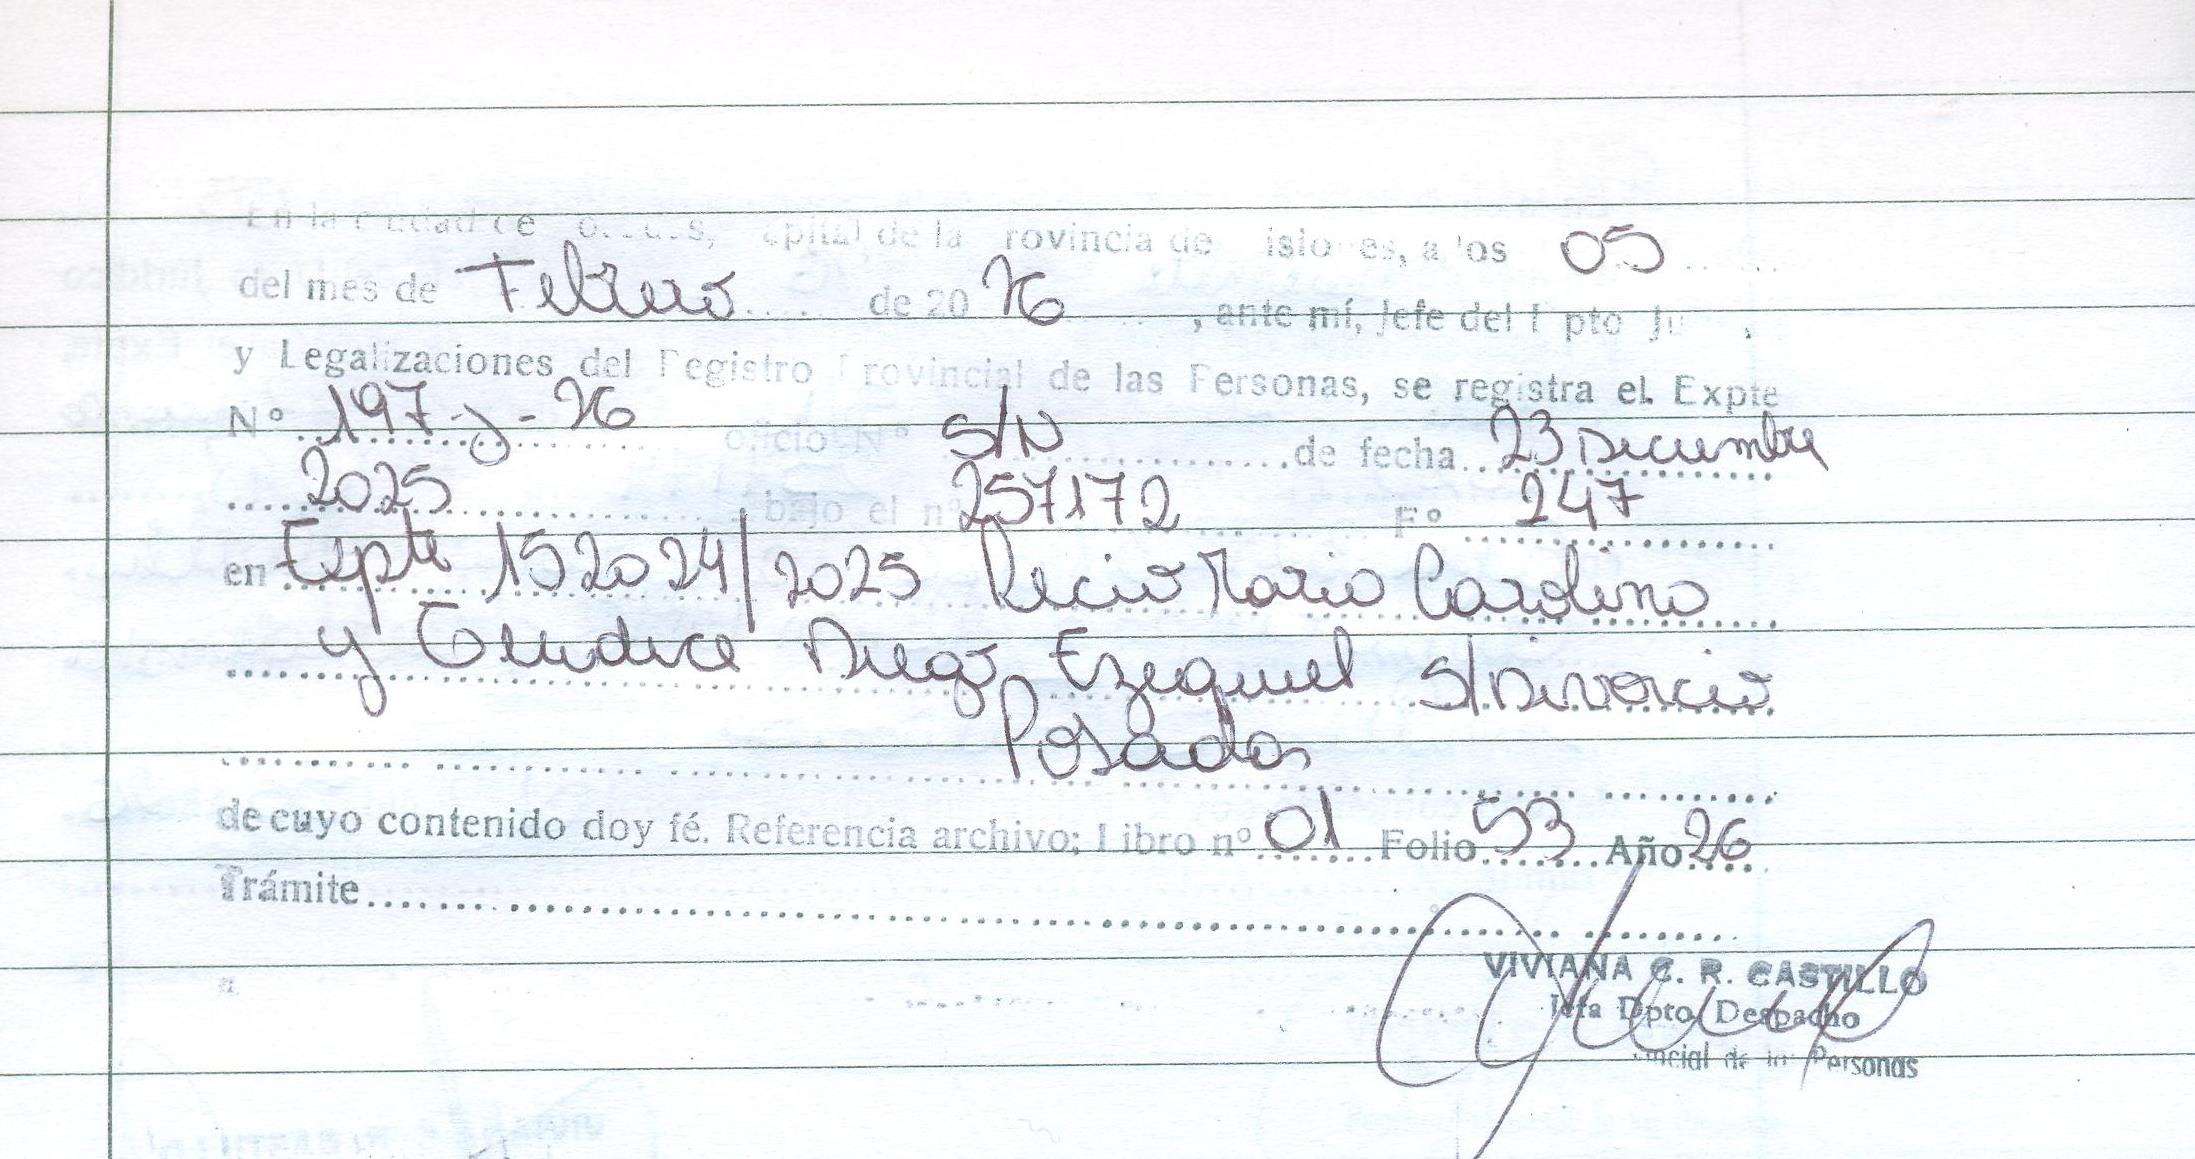 En la ciudad de Posadas, capital, de la Provincia de Misiones, a los 05
del mes de Febrero de 20 26, ante mí, Jefe del Dpto Ju
y Legalizaciones del Registro Provincial de las Personas, se registra el Expte
Nº 197-J-26 oficio Nº S/N de fecha 23 Diciembre
2025 bajo el nº 257172 Fº 247
en Expte 152024/2025 Recio Maria Carolina
y Giudice Diego Ezequiel S/Divorcio
Posadas
de cuyo contenido doy fé. Referencia archivo; Libro nº 01 Folio 53 Año 26
Trámite
VIVIANA C. R. CASTILLO
Jefa Dpto Despacho
Personas